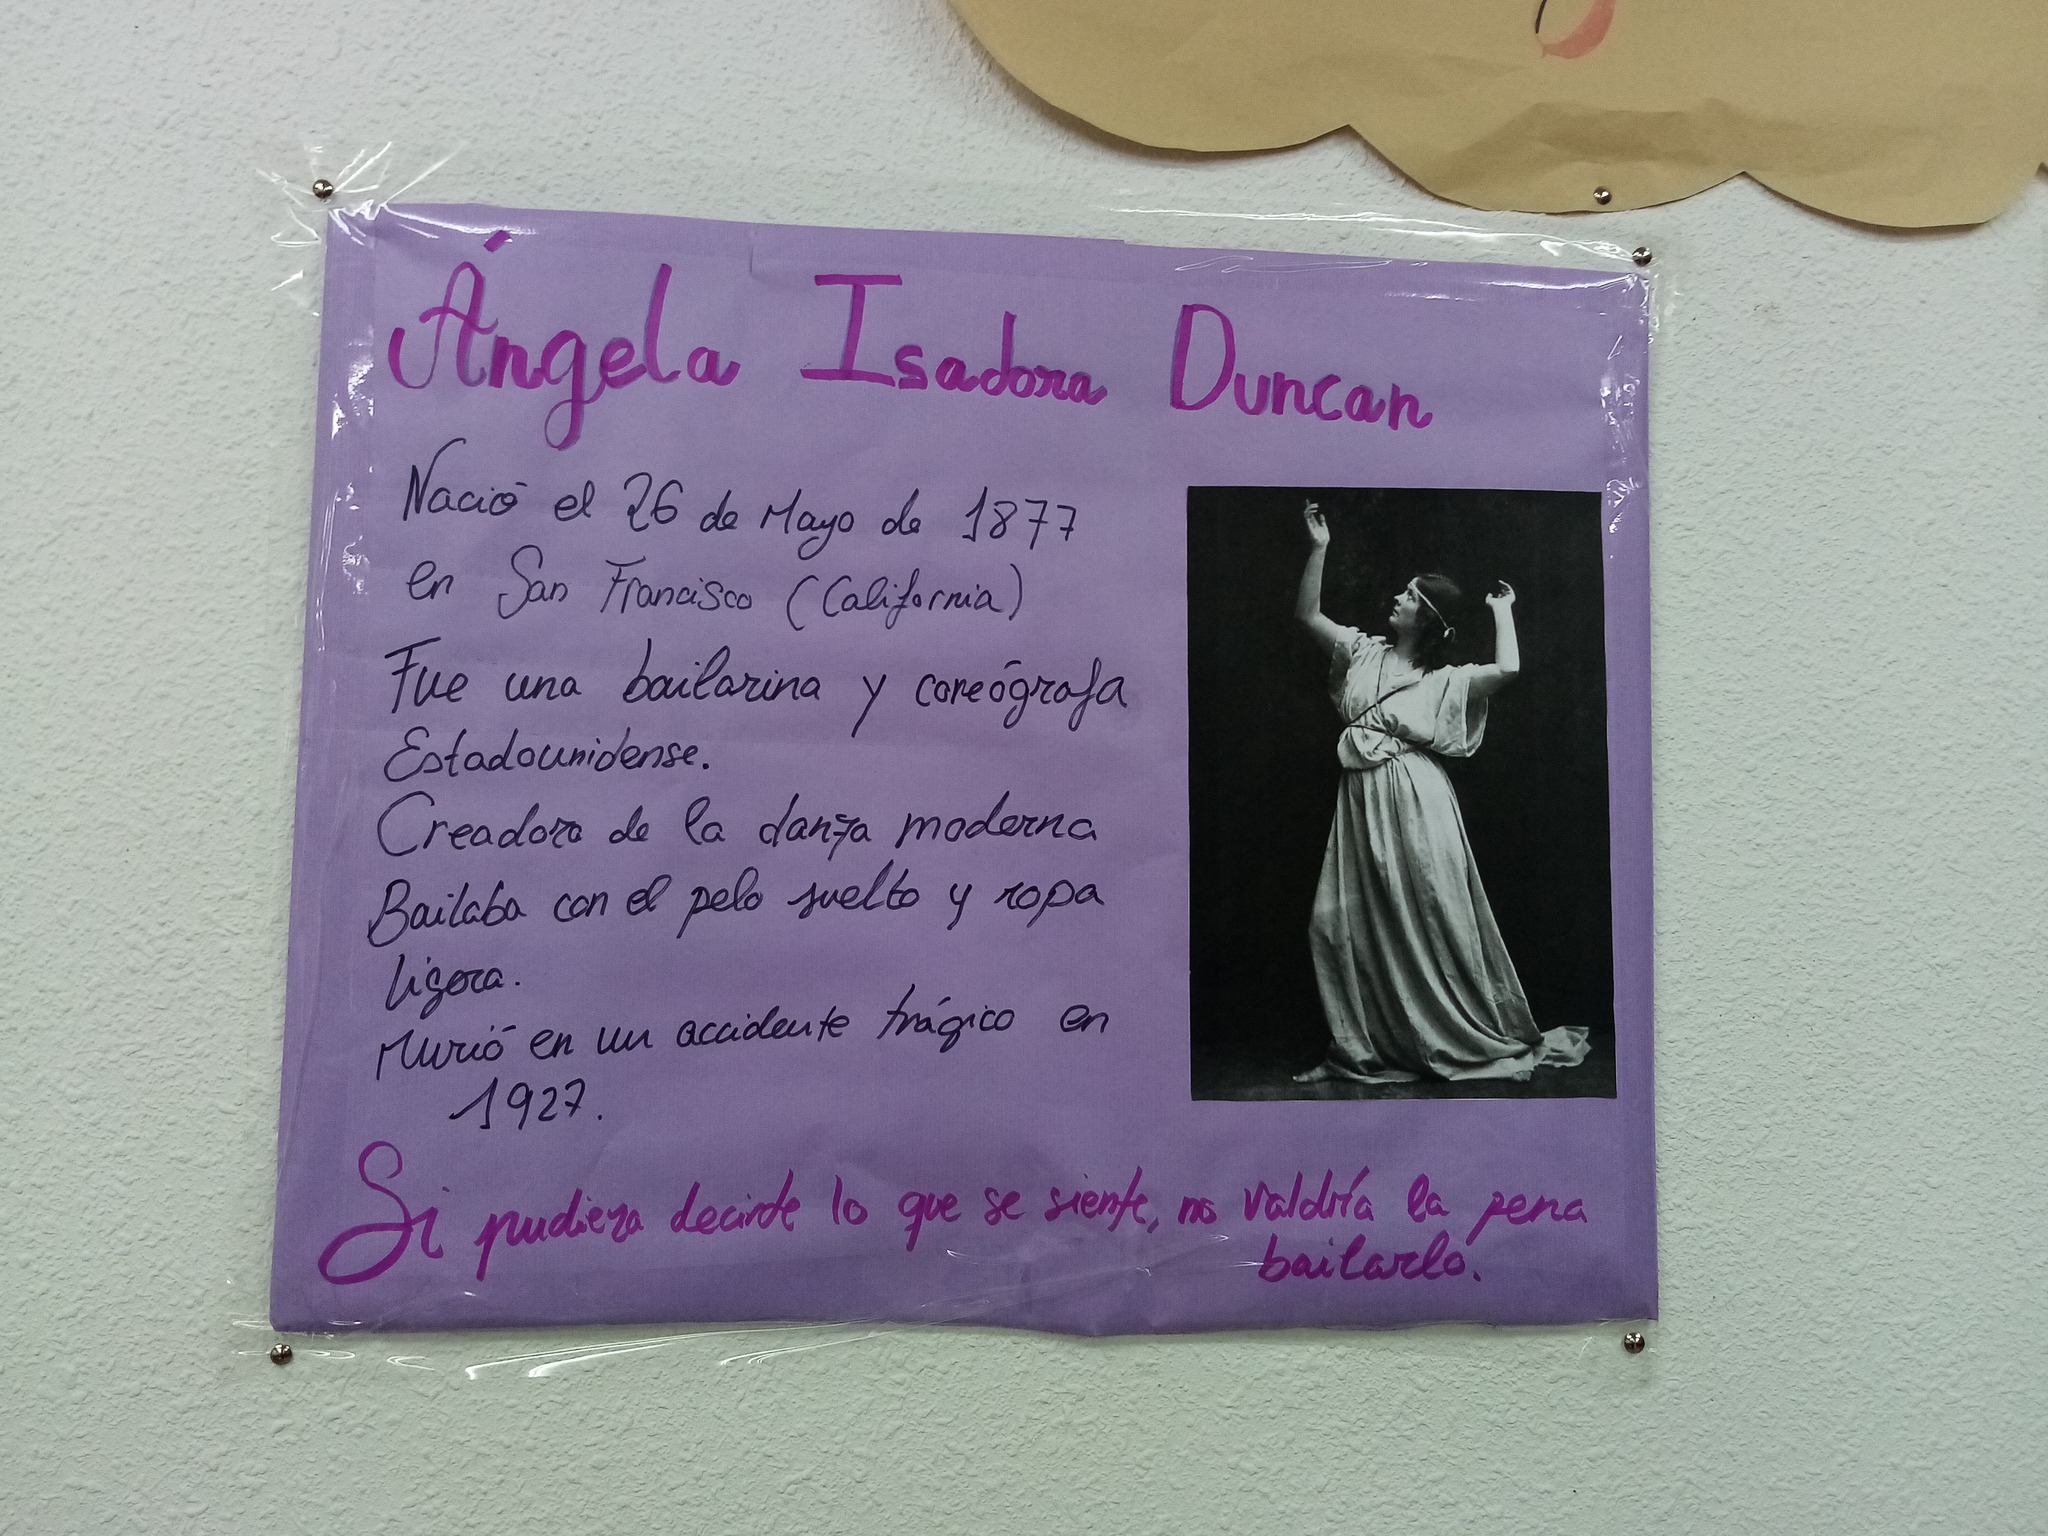 Ángela Isadora Duncan
Nació el 26 de Mayo de 1877
en San Francisco (California)
Fue una bailarina y coreógrafa
Estadounidense.
Creadora de la danza moderna
Bailaba con el pelo suelto y ropa
ligera.
Murió en un accidente trágico en
1927.
Si pudiera decirte lo que se siente, no valdría la pena
bailarlo.